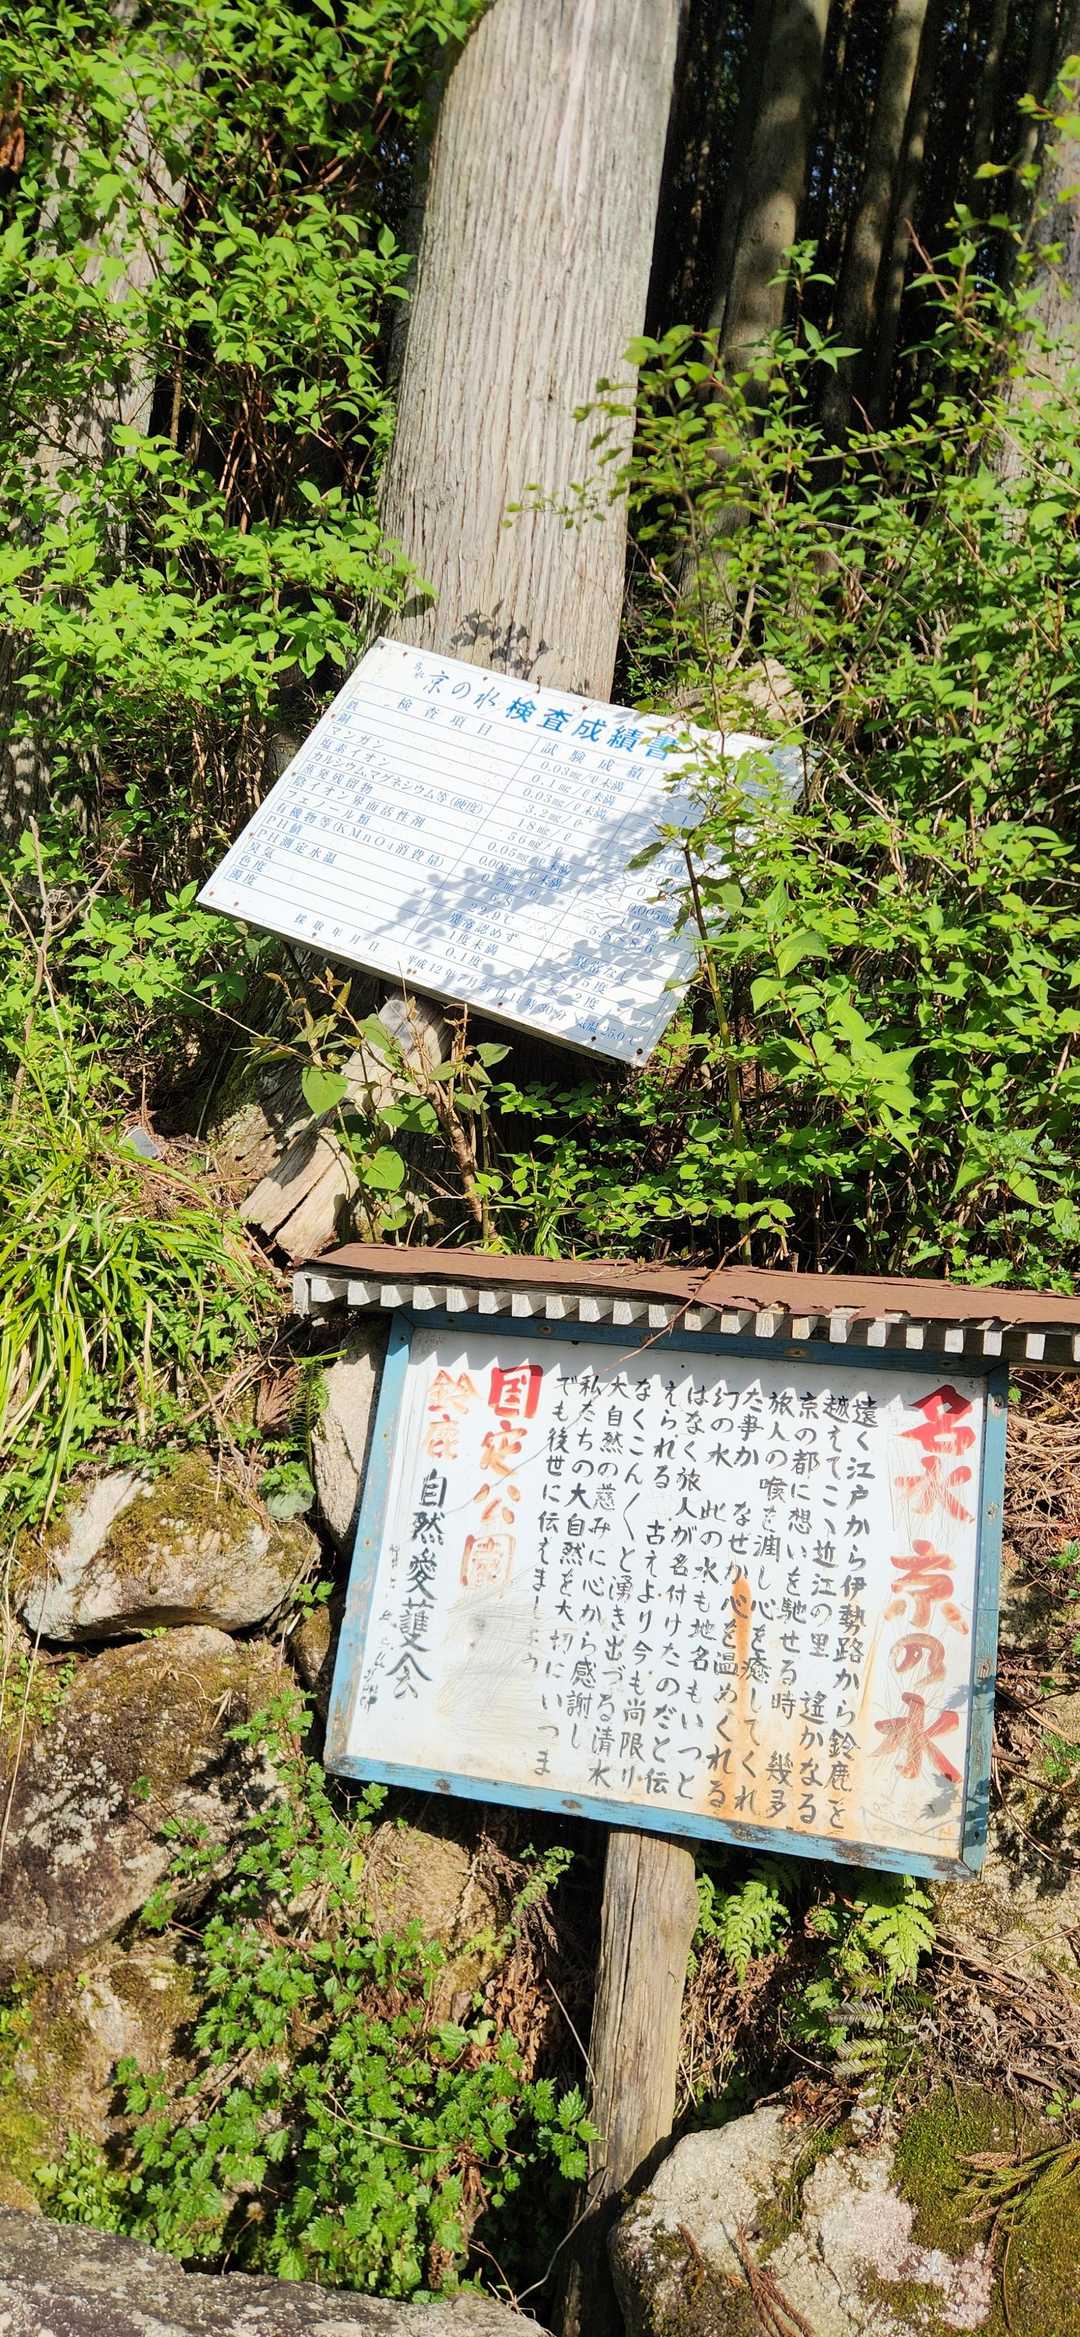 名水 京の水 検査成績書
検査項目 試験成績
鉄 0.03㎎/ℓ未満
銅 0.1㎎/ℓ未満
マンガン 0.03㎎/ℓ未満
塩素イオン 3.2㎎/ℓ
カルシウムマグネシウム等(硬度) 18㎎/ℓ
蒸発残留物 56㎎/ℓ
陰イオン界面活性剤 0.05㎎/ℓ未満
フェノール類 0.005㎎/ℓ未満
有機物等(KMnO4消費量) 0.7㎎/ℓ
PH値 6.8 5.8〜8.6
PH測定水温 22.9℃
臭気 異常認めず 異常なし
色度 1度未満 5度
濁度 0.1度 2度
採取年月日 平成12年7月 気温25.0℃
名水 京の水
遠く江戸から伊勢路から鈴鹿を
越えてこゝ近江の里 遙かなる
京の都に想いを馳せる時 幾多
旅人の喉を潤し心を癒してくれ
た事か なぜか心を温めくれる
幻の水 此の水も地名もいつと
はなく旅人が名付けたのだと伝
えられる 古えより今も尚限り
なくこんくと湧き出づる清水
大自然の慈みに心から感謝し
私たちの大自然を大切にいつま
でも後世に伝えましょう
国定公園
鈴鹿 自然愛護会